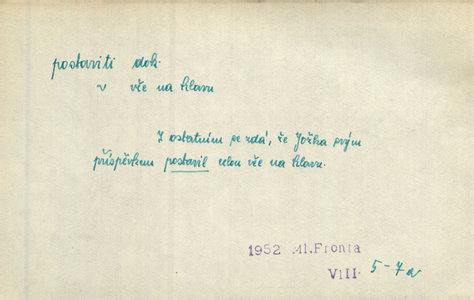 postaviti dok.
v vše na hlavu
Z ostatním se zdá, že Jožka svým
příspěvkem postavil celou vše na hlavu.
1952 Ml.Fronta
VIII. 5-7a